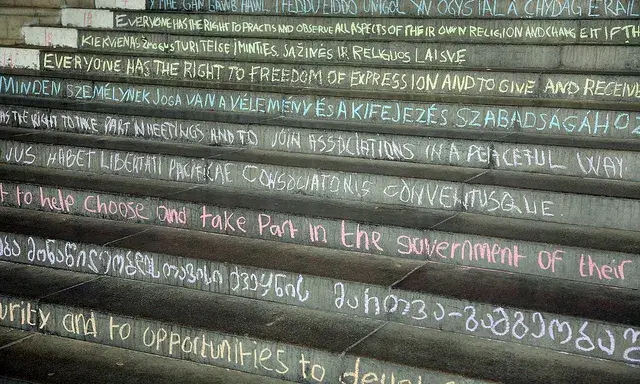 MAE GAN BAWB HAWL I EDDU EIDDO UNIGOL YN OGYSTAL Â CHYDAG ERAILL
18 EVERYONE HAS THE RIGHT TO PRACTIS AND OBSERVE ALL ASPECTS OF THEIR OWN RELIGION AND CHANGE IT IF TH
18 KIEKVIENAS ŽMOGUS TURI TEISĘ Į MINTIES, SĄŽINĖS IR RELIGIJOS LAISVĘ
EVERYONE HAS THE RIGHT TO FREEDOM OF EXPRESSION AND TO GIVE AND RECEIVE
MINDEN SZEMÉLYNEK JOGA VAN A VÉLEMÉNY ÉS A KIFEJEZÉS SZABADSÁGÁHOZ
HAS THE RIGHT TO TAKE PART IN MEETINGS AND TO JOIN ASSOCIATIONS IN A PEACEFUL WAY
JUS HABET LIBERTATI PACIFICAE CONSOCIATIONIS CONVENTUSQUE.
t to help choose and take part in the government of their
მონაწილეობდეს თავისი ქვეყნის მართვა-გამგეობაშ
urity and to opportunities to devel